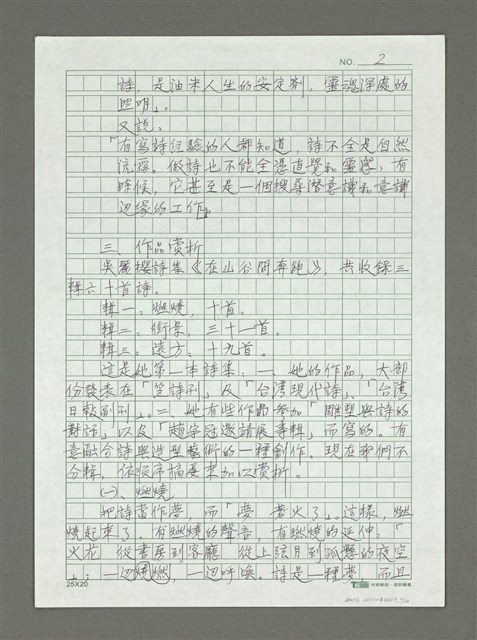 NO. 2
詩，是油米人生的安定劑，靈魂深處的
照明」。
又說：
「有寫詩經驗的人都知道，詩不全是自然
流露。做詩也不能全憑直覺和靈感，有
時候，它甚至是一個搜尋潛意識和意識
边缘的工作」。
三、作品赏析
吳麗櫻詩集《在山谷間奔跑》，共收錄三
輯六十首詩。
輯一：燃燒，十首。
輯二：街景，三十一首。
輯三：遠方，十九首。
這是她第一本詩集：一、她的作品，大部
份發表在「笠詩刊」及「台湾现代詩」、「台湾
日報副刊」。二、她有些作品參加「雕塑與詩的
對話」以及「趙宗冠邀請展專輯」而寫的。有
意融合詩與造型藝術的一種創作。現在我們不
分輯，依順序摘要來加以赏析。
㈠、燃燒
把詩當作夢，而「夢 著火了」，這樣，燃
燒起來了，有燃燒的聲音，有燃燒的延伸：「
火花 從書房到客廳 從上弦月到孤懸的夜空
」；一边燃，一边呼喚。詩是一種夢，而且
25X20